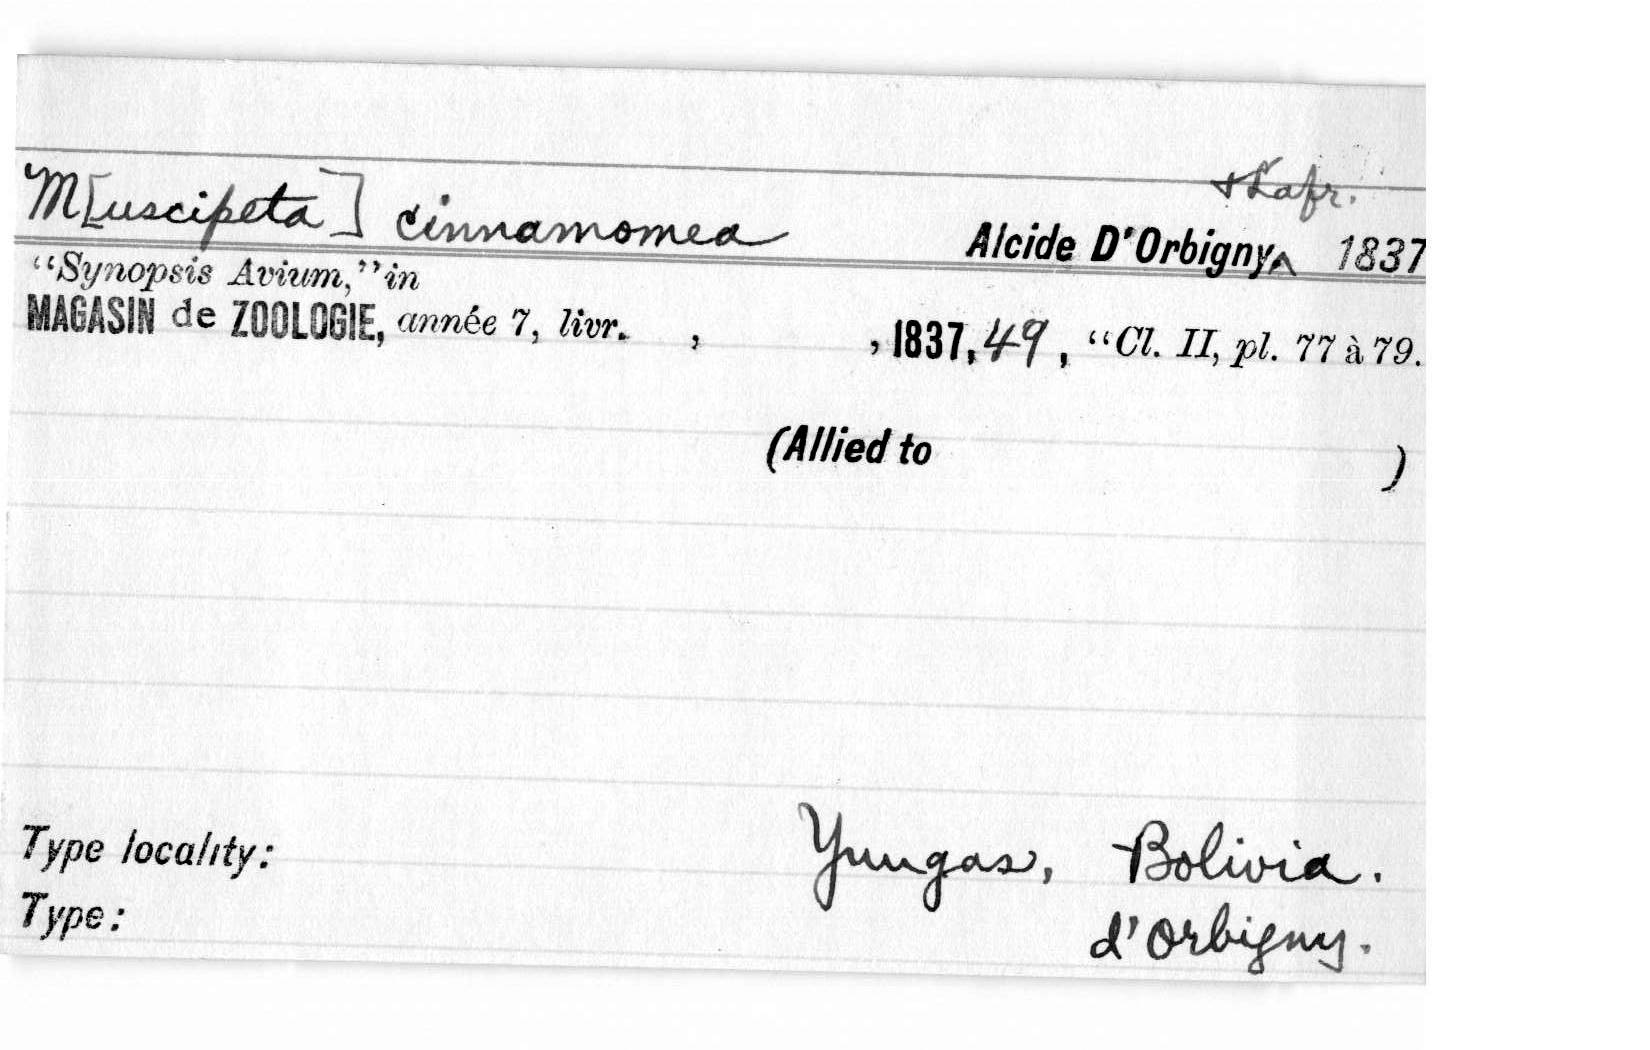 & Lafr.
M[uscipeta] cinnamomea Alcide D'Orbigny^ 1837
“Synopsis Avium,” in
MAGASIN de ZOOLOGIE, année 7, livr. , , 1837, 49, “Cl. II, pl. 77 à 79.
(Allied to )
Type locality: Yungas, Bolivia.
Type: d'Orbigny.